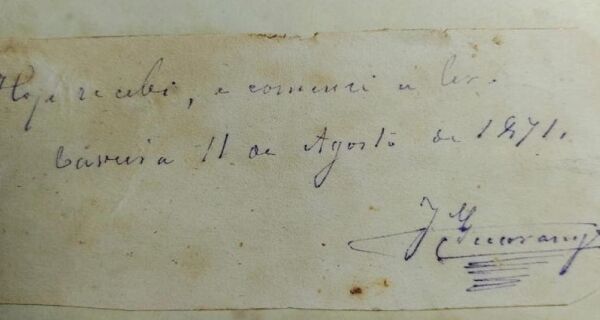 Hoje recebi, e comecei a ler.
11 de Agosto de 1871.